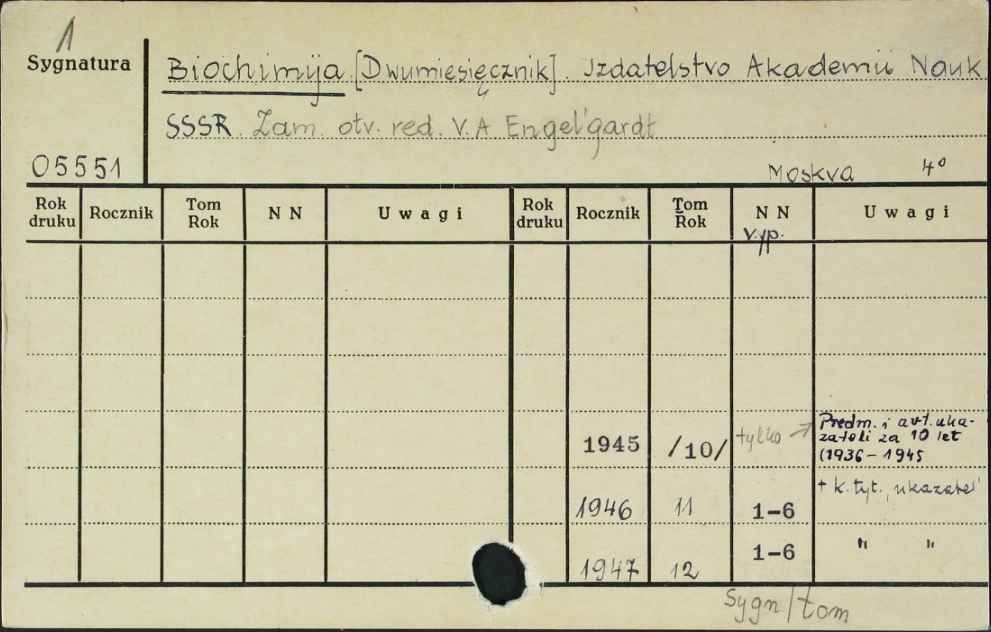 1
Sygnatura
Biochimija [Dwumiesięcznik]. Izdatelstvo Akademii Nauk
SSSR. Zam. otv. red. V.A Engel'gardt
05551
Moskva 4°
Rok druku Rocznik Tom Rok N N Uwagi Rok druku Rocznik Tom Rok N N Uwagi
vyp.
1945 /10/ tylko → Predm. i avt. uka-
zateli za 10 let
(1936-1945
1946 11 1-6 + k. tyt., ukazatel'
1947 12 1-6 " "
Sygn/tom